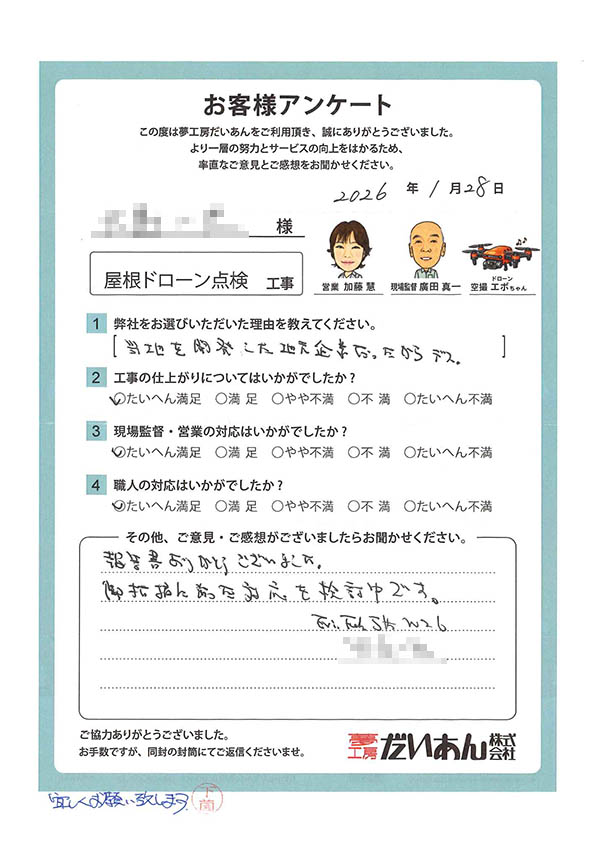 お客様アンケート
この度は夢工房だいあんをご利用頂き、誠にありがとうございました。
より一層の努力とサービスの向上をはかるため、
率直なご意見とご感想をお聞かせください。
2026 年 1 月 28 日
様
屋根ドローン点検 工事
営業 加藤 慧
現場監督 廣田 真一
ドローン
空撮 エポちゃん
1 弊社をお選びいただいた理由を教えてください。
[ 当地を開発した地元企業だったからデス。 ]
2 工事の仕上がりについてはいかがでしたか?
○たいへん満足 ○満 足 ○やや不満 ○不 満 ○たいへん不満
3 現場監督・営業の対応はいかがでしたか?
○たいへん満足 ○満 足 ○やや不満 ○不 満 ○たいへん不満
4 職人の対応はいかがでしたか?
○たいへん満足 ○満 足 ○やや不満 ○不 満 ○たいへん不満
その他、ご意見・ご感想がございましたらお聞かせください。
報告書ありがとうございました。
御指摘にあった対応を検討中です。
ご協力ありがとうございました。
お手数ですが、同封の封筒にてご返信くださいませ。
夢工房 だいあん 株式会社
宜しくお願い致します
下薗